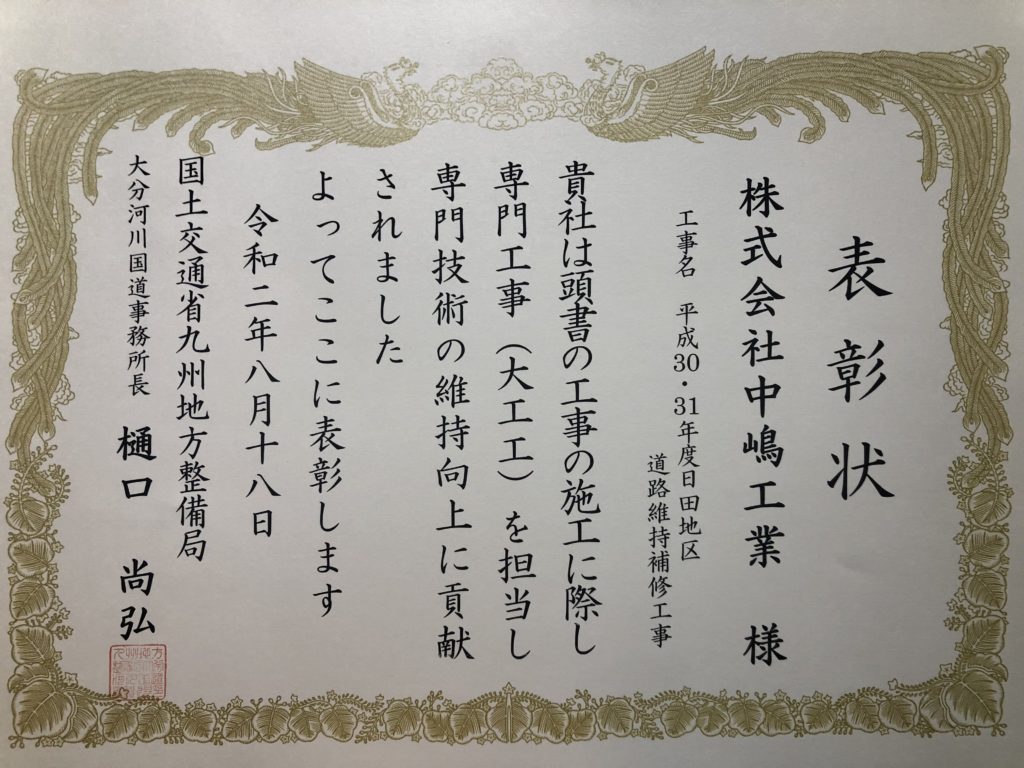 表彰状
株式会社中嶋工業 様
工事名 平成30・31年度日田地区
道路維持補修工事
貴社は頭書の工事の施工に際し
専門工事（大工工）を担当し
専門技術の維持向上に貢献
されました
よってここに表彰します
令和二年八月十八日
国土交通省九州地方整備局
大分河川国道事務所長 樋口 尚弘